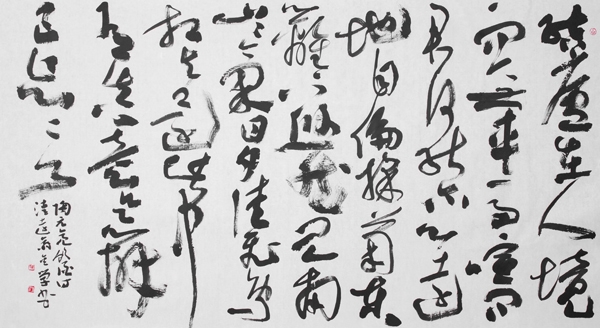 結廬在人境
而無車馬喧問
君何能尔心遠
地自偏採菊東
籬下悠然見南
山々氣日夕佳飛鳥
相與還此中
有真意欲辨
已忘言
陶元亮飲酒詩